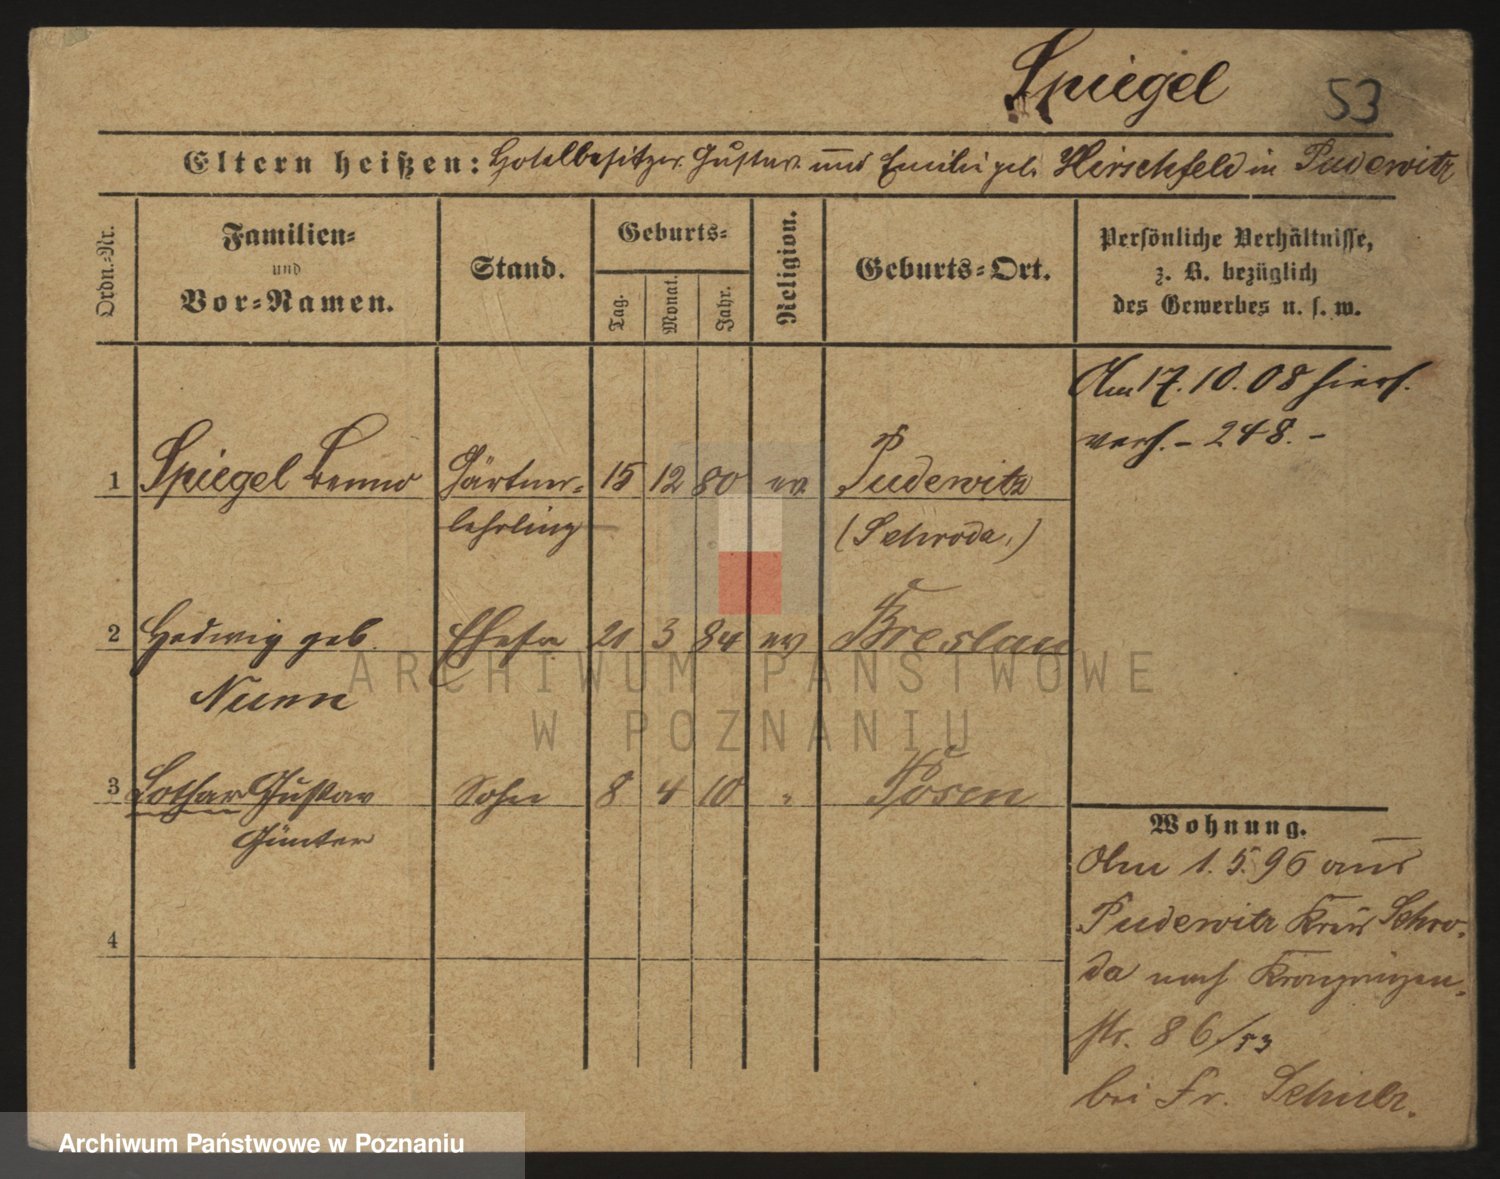 Spiegel 53
Eltern heißen: Hotelbesitzer Gustav und Emilie geb. Hirschfeld in Pudewitz
Ordn.-Nr.
Familien-
und
Vor-Namen.
Stand.
Geburts-
Tag.
Monat.
Jahr.
Religion.
Geburts-Ort.
Persönliche Verhältnisse,
z. B. bezüglich
des Gewerbes u. s. w.
Am 17. 10. 08 hiers.
verh. - 248. -
1 Spiegel Benno Gärtner- 15 12 80 ev Pudewitz
lehrling (Schroda.)
2 Hedwig geb. Ehefr 21 3 84 ev Breslau
Nunn
3 Lothar Gustav Sohn 8 4 10 " Posen
Günter
4
Wohnung.
Am 1. 5. 96 aus
Pudewitz Kreis Schro-
da nach Kronprinzen-
str. 86/53
bei Fr. Schulz.
ARCHIWUM PAŃSTWOWE
W POZNANIU
Archiwum Państwowe w Poznaniu